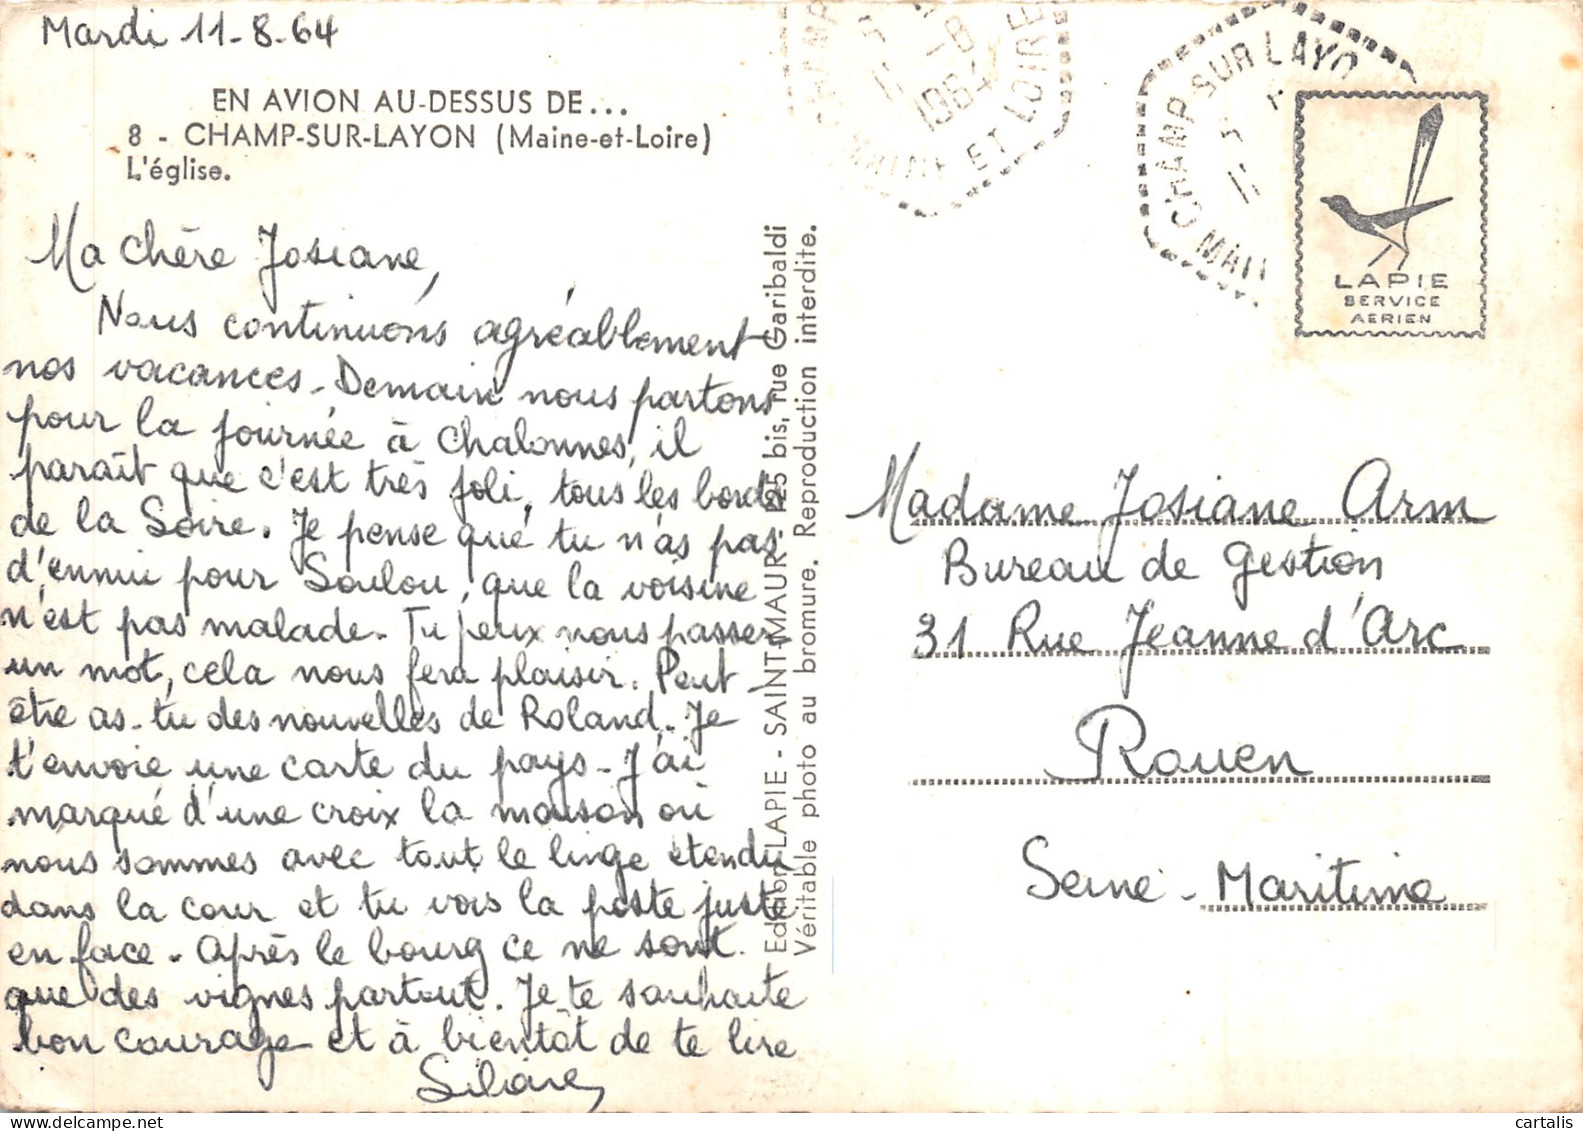 Mardi 11-8-64
EN AVION AU-DESSUS DE...
8 - CHAMP-SUR-LAYON (Maine-et-Loire)
L'église.
Ma chère Josiane,
Nous continuons agréablement
nos vacances - Demain nous partons
pour la journée à Chalonnes, il
paraît que c'est très joli, tous les bords
de la Loire. Je pense que tu n'as pas
d'ennui pour Loulou, que la voisine
n'est pas malade. Tu peux nous passer
un mot, cela nous fera plaisir. Peut-
être as-tu des nouvelles de Roland. Je
t'envoie une carte du pays - J'ai
marqué d'une croix la maison où
nous sommes avec tout le linge étendu
dans la cour et tu vois la poste juste
en face - Après le bourg ce ne sont
que des vignes partout. Je te souhaite
bon courage et à bientôt de te lire
Liliane
Edition LAPIE - SAINT-MAUR 125 bis, rue Garibaldi
Véritable photo au bromure. Reproduction interdite.
CHAMP
11 -8
1964
MAINE ET LOIRE
CHAMP SUR LAYO
11
MAIN
LAPIE
SERVICE
AERIEN
Madame Josiane Arm
Bureau de gestion
31 Rue Jeanne d'Arc
Rouen
Seine - Maritime
cartalis